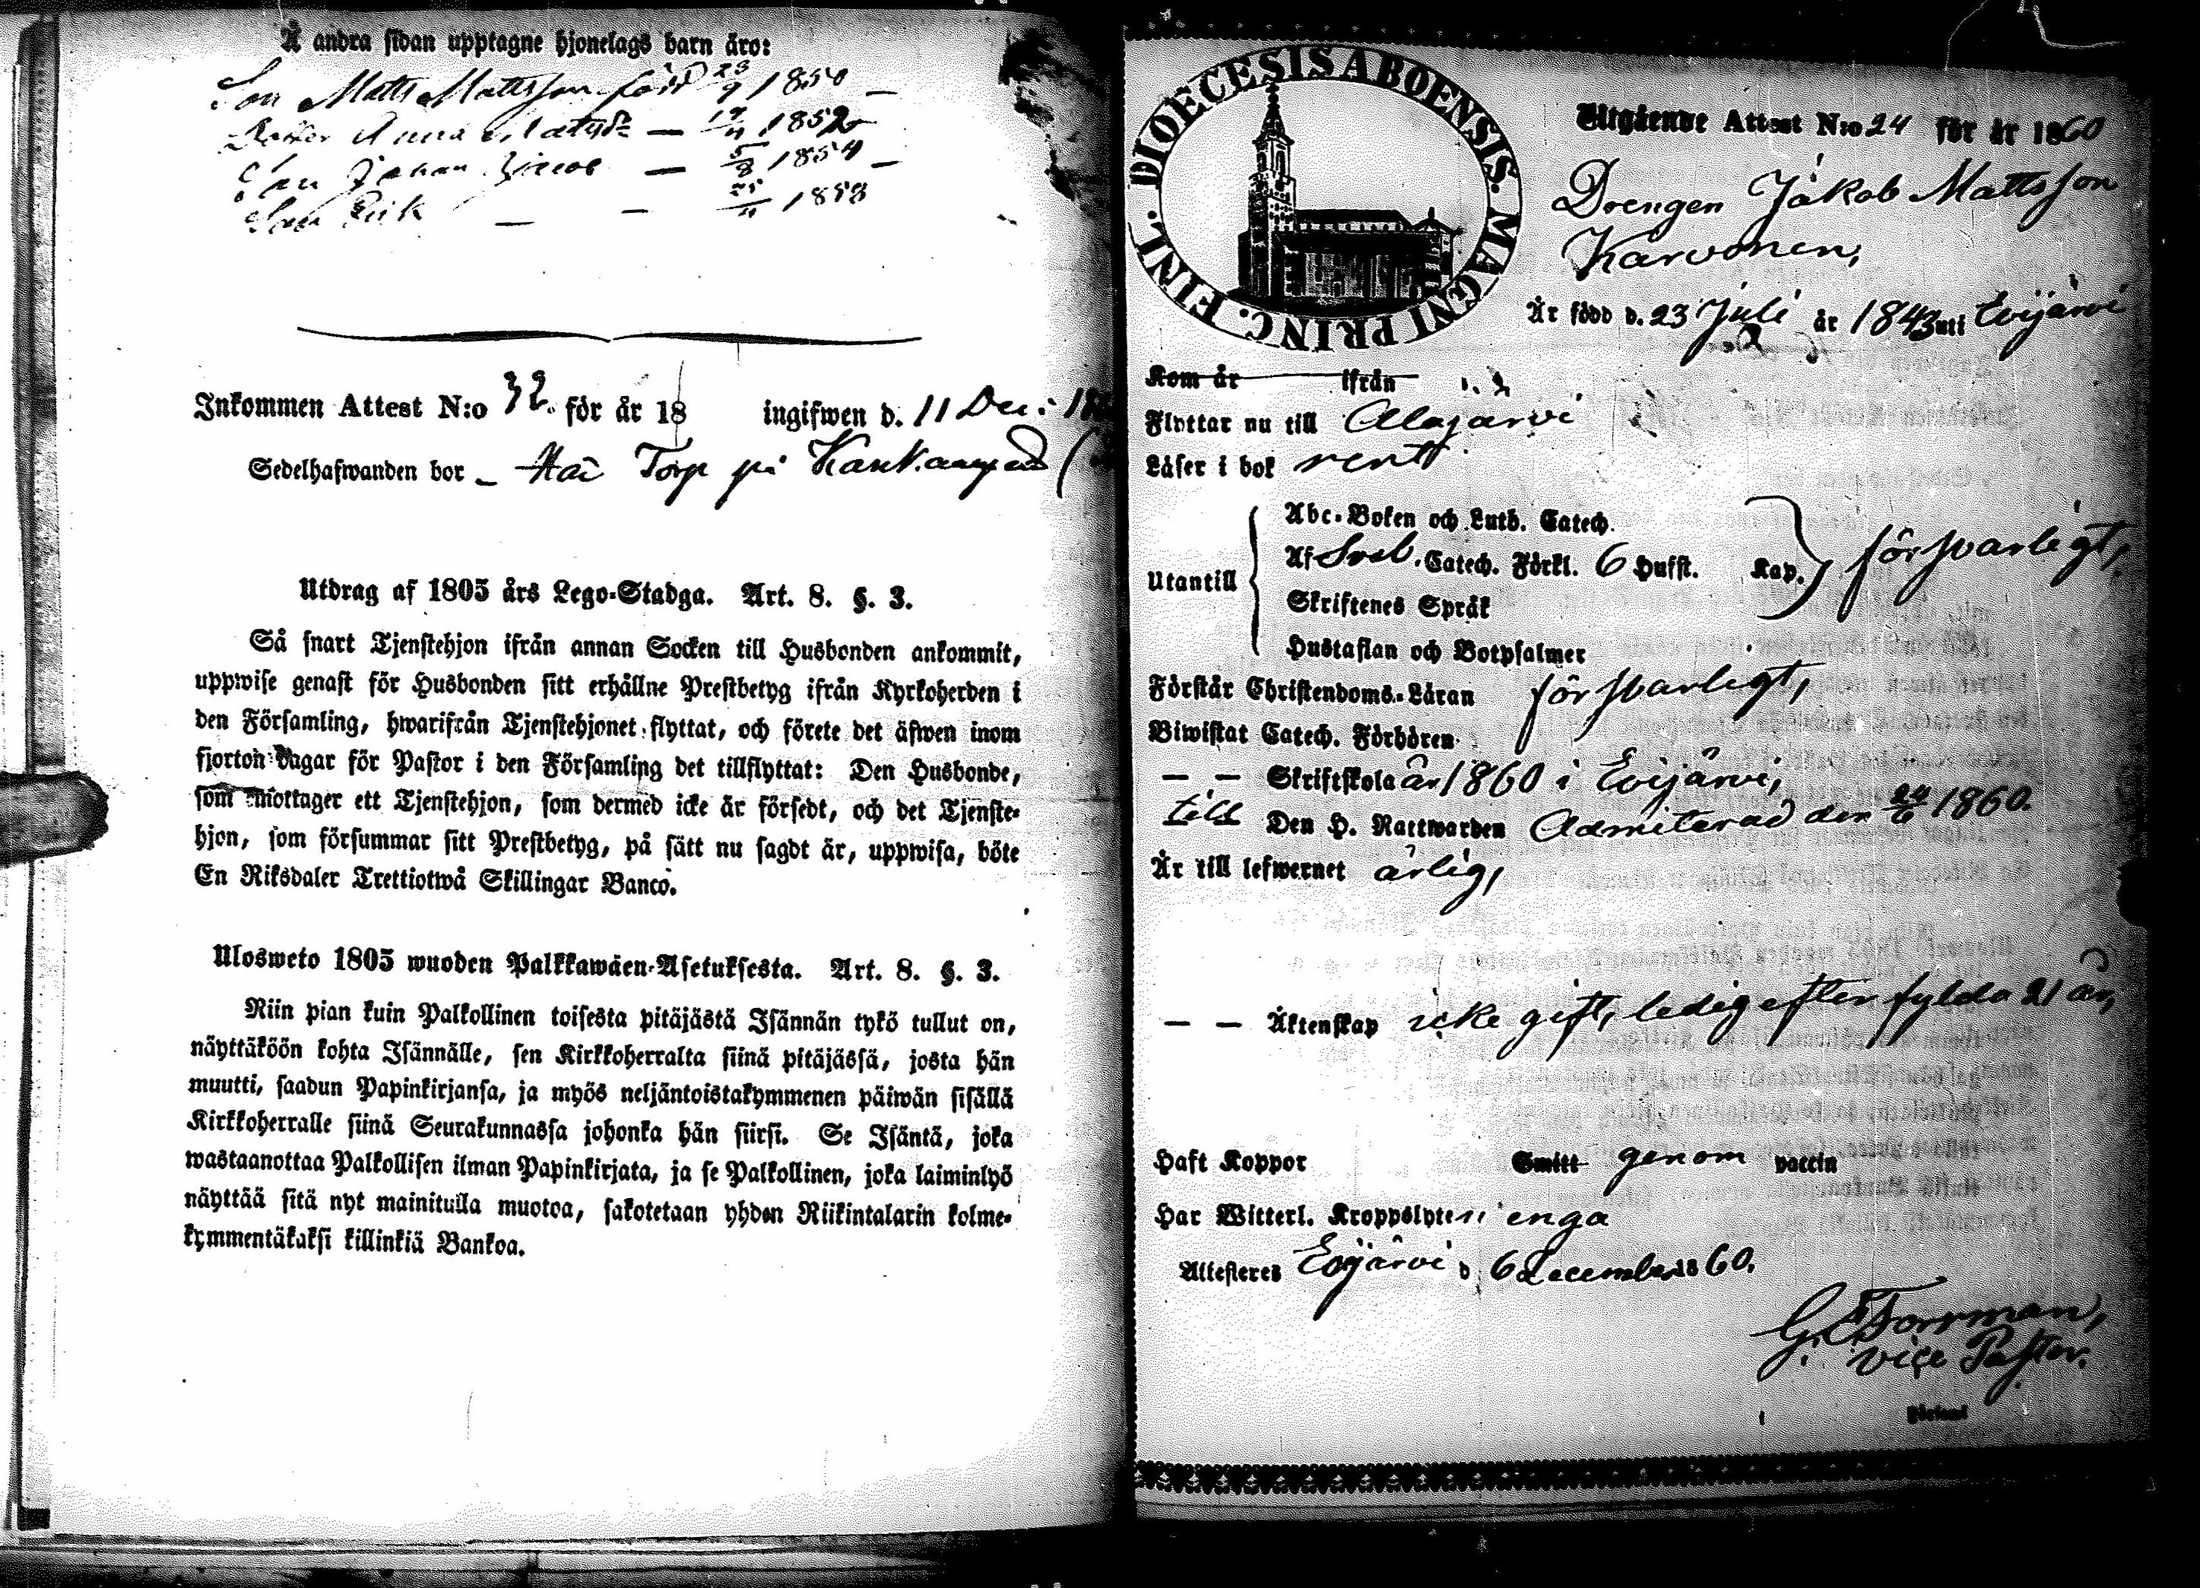 Å andra sidan upptagne hjonelags barn äro:
Son Matts Mattsson född 23/9 1850 —
Dotter Anna — 19/11 1852
Son Johan Jacob — 5/8 1854 —
Son Erik — — 25/11 1858
Inkommen Attest N:o 32. för år 18 ingifwen d. 11 Dec. 18
Sedelhafwanden bor — Torp på
Utdrag af 1805 års Lego-Stadga. Art. 8. §. 3.
Så snart Tjenstehjon ifrån annan Socken till Husbonden ankommit,
uppwise genast för Husbonden sitt erhållne Prestbetyg ifrån Kyrkoherden i
den Församling, hwarifrån Tjenstehjonet flyttat, och förete det äfwen inom
fjorton dagar för Pastor i den Församling det tillflyttat: Den Husbonde,
som emottager ett Tjenstehjon, som dermed icke är försedt, och det Tjenste-
hjon, som försummar sitt Prestbetyg, på sätt nu sagdt är, uppwisa, böte
En Riksdaler Trettiotwå Skillingar Banco.
Ulosweto 1805 wuoden Palkkawäen-Asetuksesta. Art. 8. §. 3.
Niin pian kuin Palkollinen toisesta pitäjästä Isännän tykö tullut on,
näyttäköön kohta Isännälle, sen Kirkkoherralta siinä pitäjässä, josta hän
muutti, saadun Papinkirjansa, ja myös neljäntoistakymmenen päiwän sisällä
Kirkkoherralle siinä Seurakunnassa johonka hän siirsi. Se Isäntä, joka
wastaanottaa Palkollisen ilman Papinkirjata, ja se Palkollinen, joka laiminlyö
näyttää sitä nyt mainitulla muotoa, sakotetaan yhden Riikintalarin kolme-
kymmentäkaksi killinkiä Bankoa.
DIOECESIS ABOENSIS. MAGNI PRINC. FINL.
Utgående Attest N:o 24 för år 1860
Drengen Jakob Mattsson
Karvonen,
Är född d. 23 Juli år 1843 uti Evijärvi
Kom år ifrån
Flyttar nu till Alajärvi
Läser i bok rent
Utantill
Abc-Boken och Luth. Catech.
Af Sveb. Catech. Förkl. 6 Hufst. Kap. försvarligt,
Skriftenes Språk
Hustaflan och Botpsalmer
Förstår Christendoms-Läran försvarligt,
Biwistat Catech. Förhören
— — Skriftskola år 1860 i Evijärvi,
till Den H. Nattwarden Admiterad den 24/6 1860.
Är till lefwernet ärlig,
— — Äktenskap icke gift, ledig efter fylda 21 år,
Haft Koppor Smitt genom vaccin
Har Witterl. Kroppslyten enga
Attesteres Evijärvi d 6 december 1860.
G. Forrman,
vice Pastor.